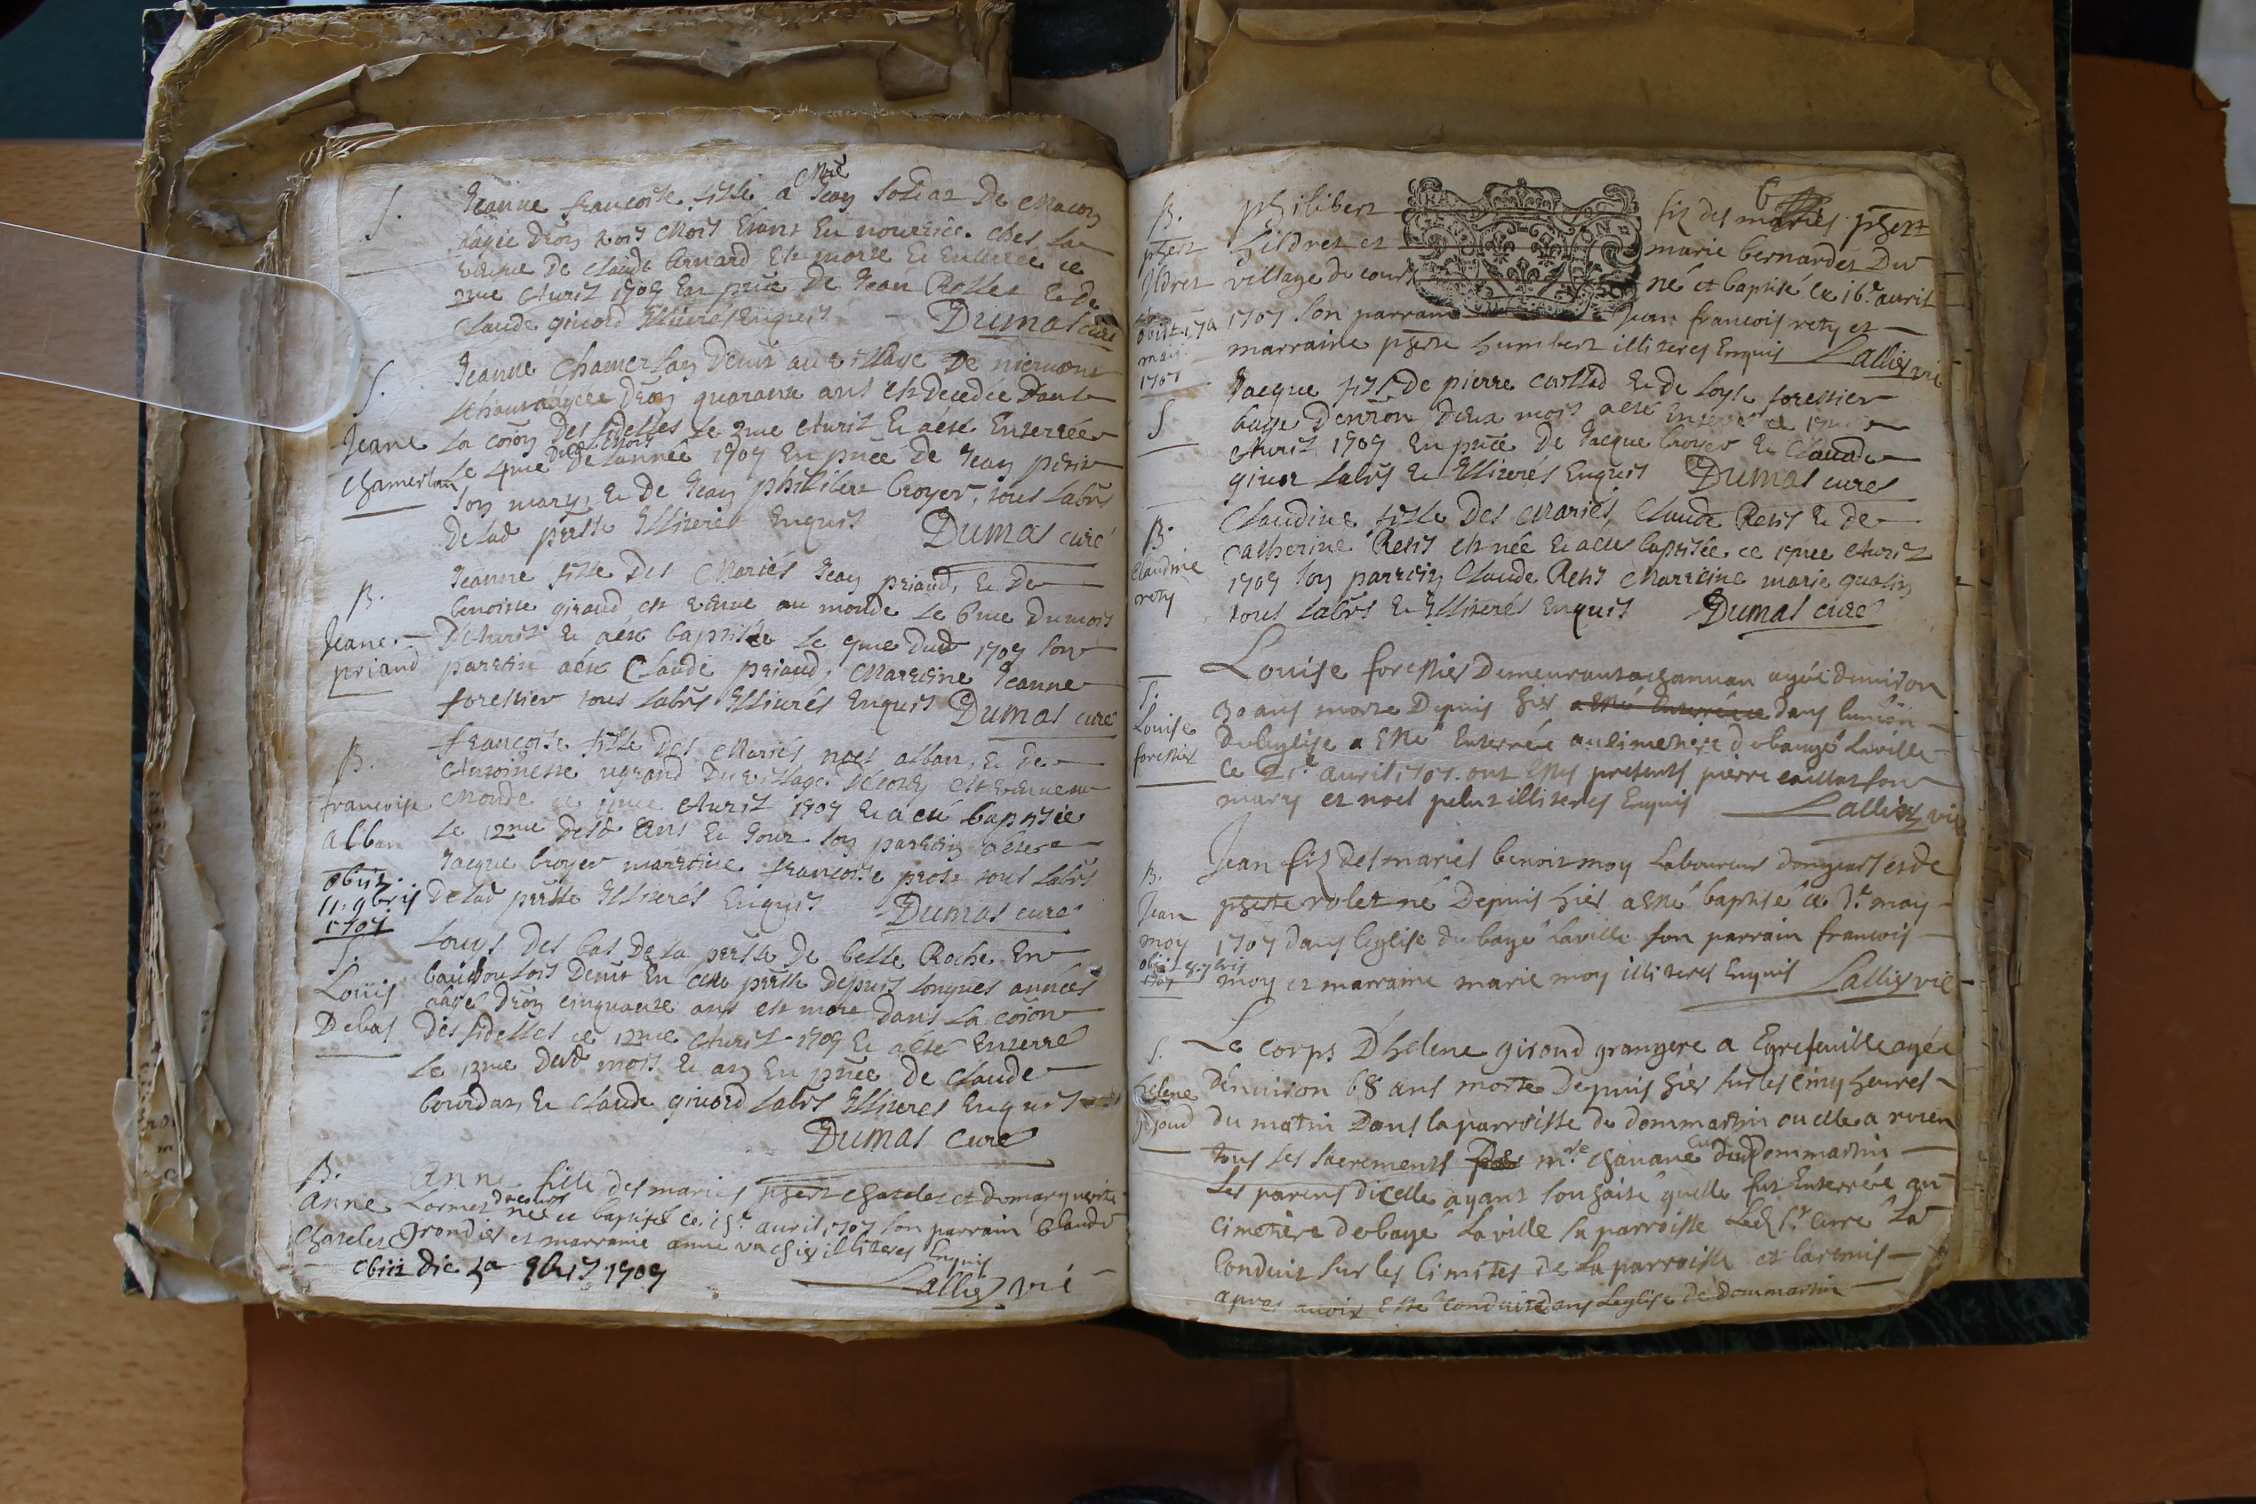 S.
Jeanne francoise fille a Me Jean soldat de Macon
aagée d'ron trois mois Etant En nourrice chés la
veuve de Claude bernard Est morte Et Enterrée ce
2me Avril 1707 En pnce de Jean Rollet Et de
Claude givord Illiterés Enquis Dumas curé
S.
Jeane
Chamerlan
Jeanne Chamerlan demt au village de
aagée d'ron quarante ans Est decedée dans
la coion des fidelles le 3me Avril Et a esté Enterrée
le 4me dud. mois de lannée 1707 En pnce de Jean petit
son mary, Et de Jean philibert broyer, tous labrs
de lad. prsse Illiterés Enquis Dumas curé
B.
Jeane
priaud
Jeanne fille des Mariés Jean priaud, Et de
benoiste giraud est venue au monde le 6me du mois
d'Avril Et a esté baptisée le 9me dud 1707 son
parrein a esté Claude priaud, Marreine Jeanne
forestier tous labrs Illiterés Enquis Dumas curé
B.
francoise
alban
obiit
11. 9bris
1707
francoise fille des Mariés noel alban, Et de
Antoinette ugrand du village est venue au
Monde ce 11me Avril 1707 Et a esté baptisée
le 12me desd. ans Et jour son parrein a esté
Jacque broyer marreine francoise prost tous labrs
de lad prsse Illiterés Enquis Dumas curé
S.
Loüis
Debas
Louys des bas de la prsse de belle Roche En
baujoulois demt En cette prsse depuis longues années
aagé d'ron cinquante ans est mort dans la coion
des fidelles ce 12me Avril 1707 Et a esté Enterré
le 13me dud mois Et an En pnce de Claude
bourdan Et Claude givord labrs Illiterés Enquis
Dumas Curé
B.
anne
Chatelet
anne fille des mariés phert chatelet et de marguerite
Lormet née et baptisée ce 15e avril 1707 son parrain Claude
grandier et marraine anne vachier illiteres Enquis
obiit die 4a 9bris 1707
Lallier vic
B.
phert
Gildret
obiit 17a
may
1707
philibert fils des mariés phert
Gildret et marie bernardet du
village de cours né et baptisé ce 16e avril
1707 son parrain Jean francois rety et
marraine phte humbert illiteres Enquis Lallier vic
S
Jacque fils de pierre caillad Et de Loyse forestier
aagé d'environ deux mois a esté Enterré ce 17me
Avril 1707 En pnce de Jacque broyer Et Claude
givor labrs Et Illiterés Enquis Dumas curé
B.
Claudine
rety
Claudine fille des Mariés Claude Retis Et de
Catherine Retis est née Et a esté baptisée ce 17me Avril
1707 son parrein Claude Retis Marreine marie gualin
tous labrs Et Illiterés Enquis Dumas curé
S.
Louise
forestier
Louise forestier Demeurant a chanuan agée denviron
30 ans morte Depuis hier a esté Enterrée dans lunion
de leglise a esté Enterrée au cimetiere de baugé la ville
ce 21e avril 1707. ont estés presents pierre caillat son
mary et noel pelut illiteres Enquis Lallier vic
B.
Jean
moy
obiit 8. 7bris
1707
Jean fils des mariés benoit moy Laboureur et de
phte rolet né Depuis hier a esté baptisé ce 3e may
1707 dans leglise de bagé la ville son parrain francois
moy et marraine marie moy illiteres Enquis Lallier vic
S.
helene
giroud
Le corps D'helene giroud grangere a Egrefeuille agée
denviron 68 ans morte depuis hier sur les cinq heures
du matin dans la parroisse de dommartin ou elle a receu
tous les sacrements mre chanane curé dud Dommartin
les parens dicelle ayant souhaité quelle fut Enterrée au
cimetiere de bagé la ville sa parroisse Led sr curé la
Conduit sur les limites de sa parroisse et la remis
apres avoir esté conduite dans leglise de dommartin